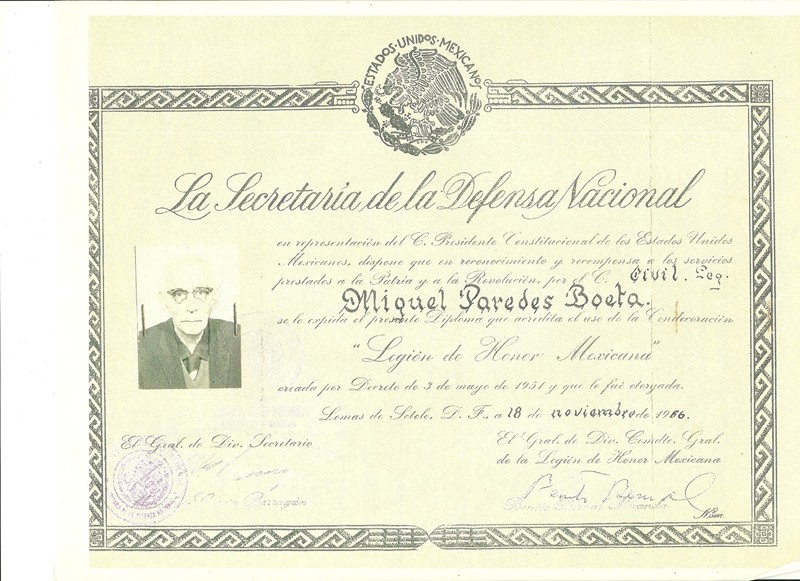 ESTADOS·UNIDOS·MEXICANOS
La Secretaría de la Defensa Nacional
en representación del C. Presidente Constitucional de los Estados Unidos
Mexicanos, dispone que en reconocimiento y recompensa a los servicios
prestados a la Patria y a la Revolución, por el C. Civil. Leg.
Miguel Paredes Boeta.
se le expida el presente Diploma que acredita el uso de la Condecoración
"Legión de Honor Mexicana"
creada por Decreto de 3 de mayo de 1951 y que le fué otorgada.
Lomas de Sotelo, D. F., a 18 de noviembre de 1966.
El Gral. de Div. Secretario
El Gral. de Div. Comdte. Gral.
de la Legión de Honor Mexicana
Barragán
Benito Bernal Miranda
Núm.